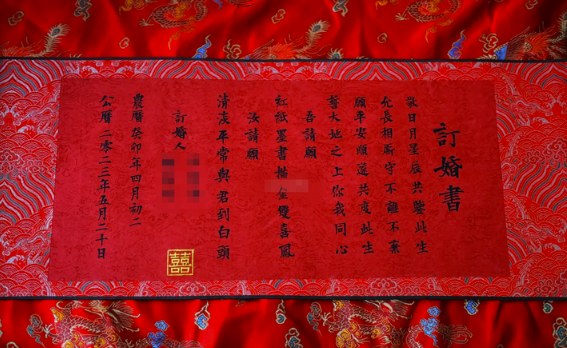 訂婚書
敬日月星辰共鑒此生
允長相廝守不離不棄
願平安順遂共度此生
誓天地之上你我同心
吾請願
紅紙墨書描金雙喜鳳
汝請願
清淡平常與君到白頭
訂婚人
農曆癸卯年四月初二
公曆二零二三年五月二十日
囍